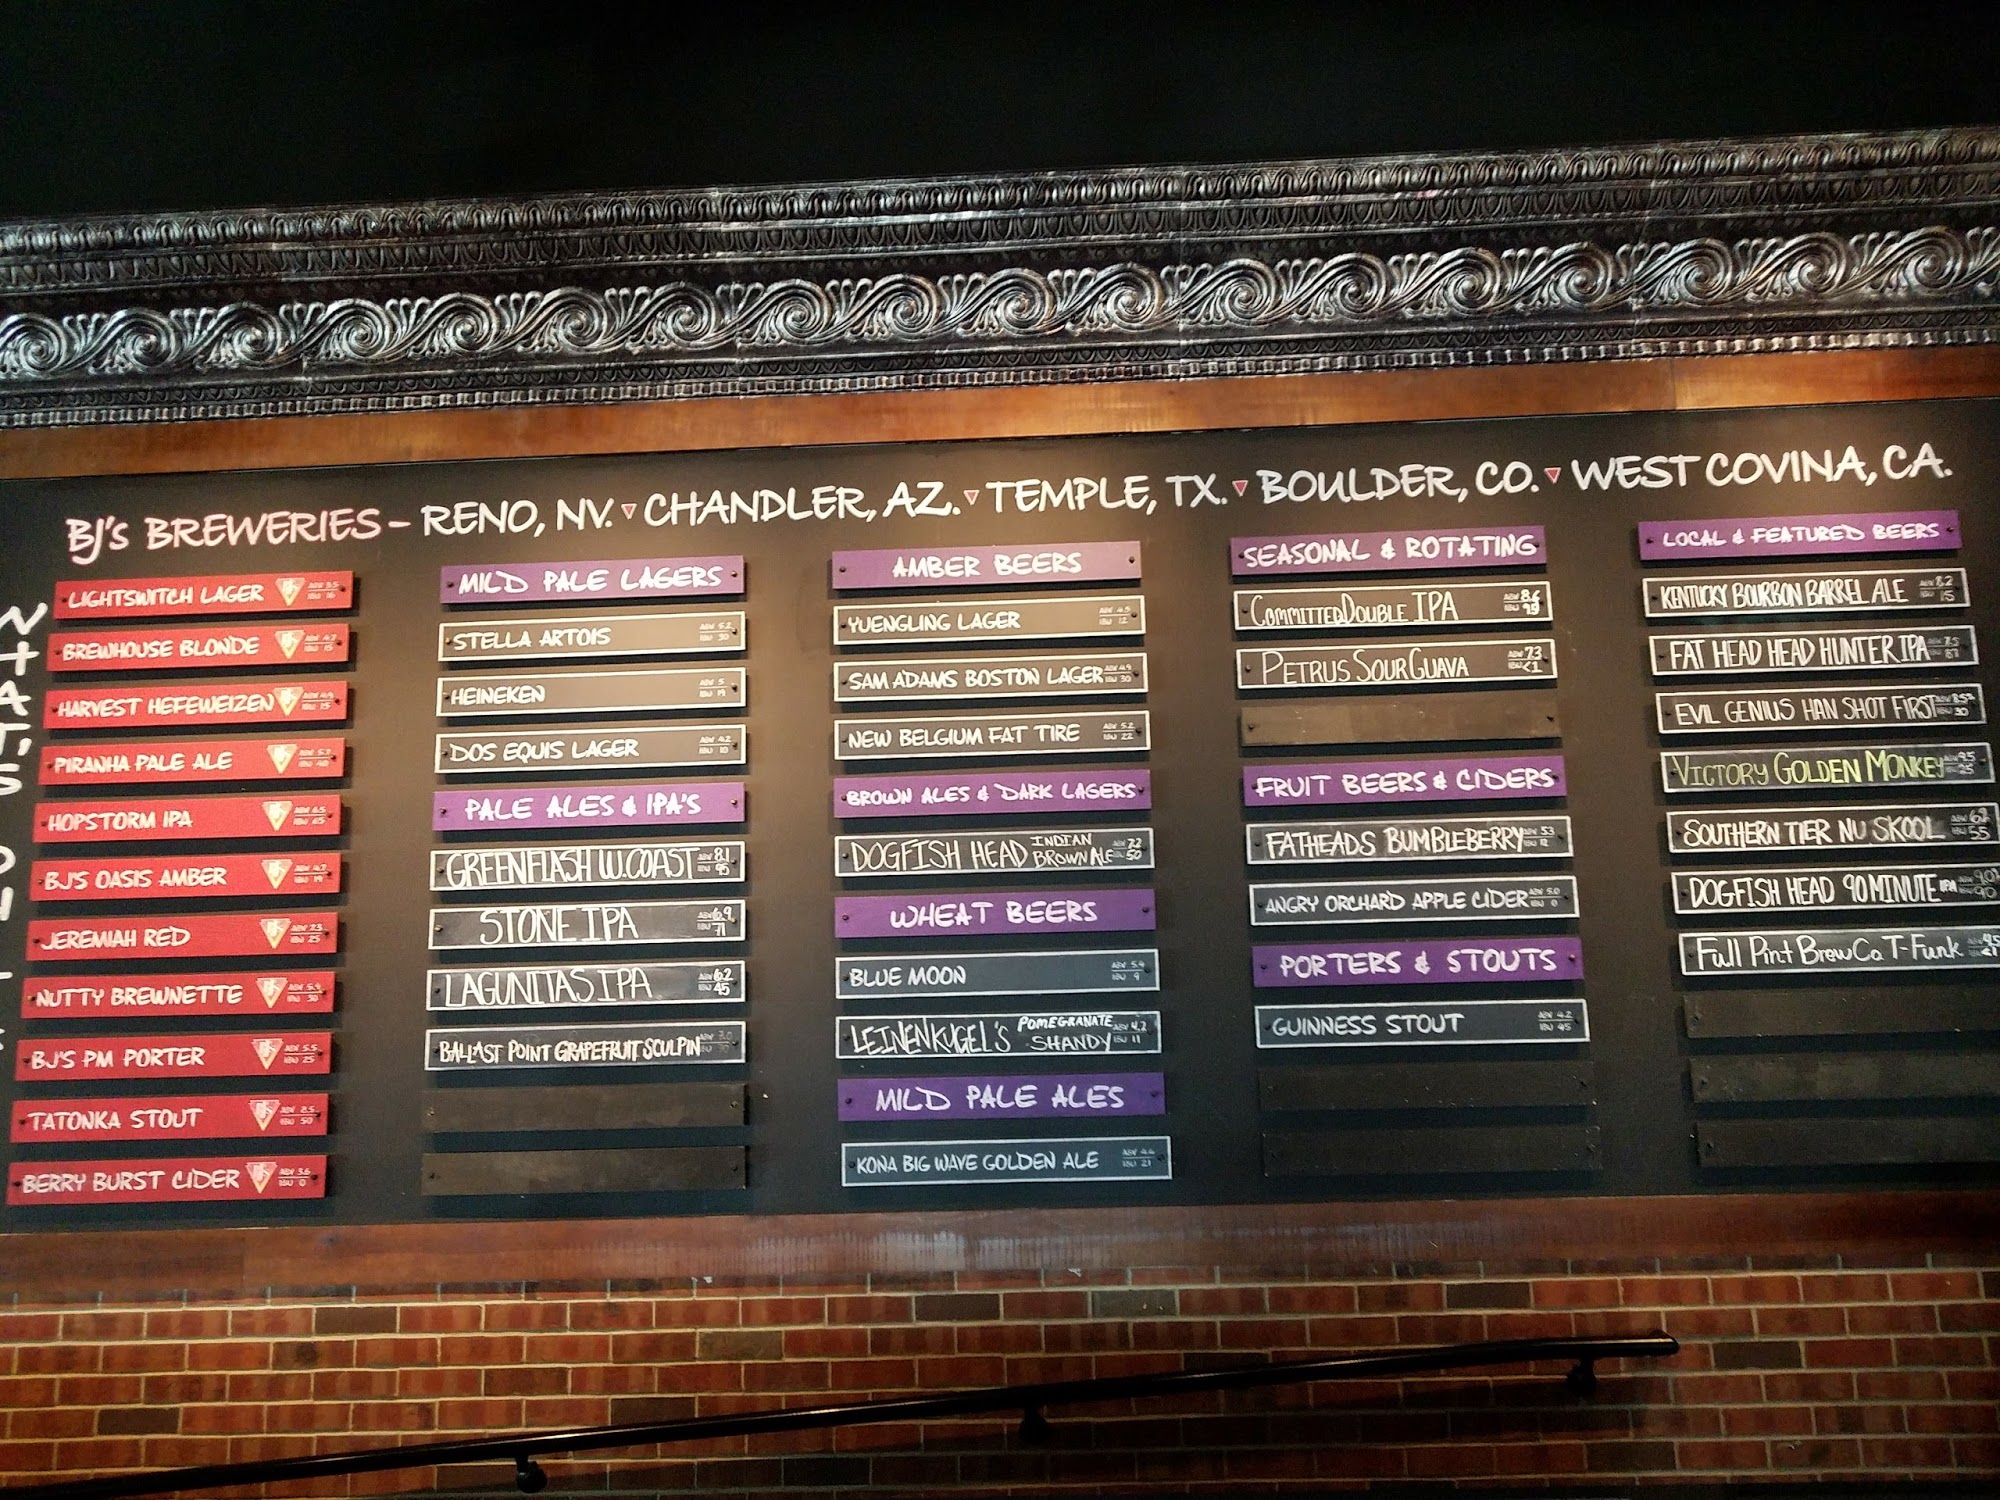 BJ'S BREWERIES - RENO, NV. CHANDLER, AZ. TEMPLE, TX. BOULDER, CO. WEST COVINA, CA.
LIGHTSWITCH LAGER
BREWHOUSE BLONDE
HARVEST HEFEWEIZEN
PIRANHA PALE ALE
HOPSTORM IPA
BJ'S OASIS AMBER
JEREMIAH RED
NUTTY BREWNETTE
BJ'S PM PORTER
TATONKA STOUT
BERRY BURST CIDER
MILD PALE LAGERS
STELLA ARTOIS ABV 5.2
IBU 30
HEINEKEN ABV 5
IBU 19
DOS EQUIS LAGER ABV 4.2
IBU 10
PALE ALES & IPA'S
GREENFLASH W.COAST ABV 8.1
IBU 95
STONE IPA ABV 6.9
IBU 71
LAGUNITAS IPA ABV 6.2
IBU 45
BALLAST POINT GRAPEFRUIT SCULPIN
AMBER BEERS
YUENGLING LAGER ABV 4.5
IBU 12
SAM ADAMS BOSTON LAGER ABV 4.9
IBU 30
NEW BELGIUM FAT TIRE ABV 5.2
IBU 22
BROWN ALES & DARK LAGERS
DOGFISH HEAD INDIAN
BROWN ALE ABV 7.2
IBU 50
WHEAT BEERS
BLUE MOON ABV 5.4
IBU 9
LEINENKUGEL'S POMEGRANATE
SHANDY ABV 4.2
IBU 11
MILD PALE ALES
KONA BIG WAVE GOLDEN ALE ABV 4.4
IBU 21
SEASONAL & ROTATING
COMMITTED DOUBLE IPA ABV 8.6
IBU
PETRUS SOUR GUAVA ABV 7.3
IBU <1
FRUIT BEERS & CIDERS
FATHEADS BUMBLEBERRY ABV 5.3
IBU 12
ANGRY ORCHARD APPLE CIDER ABV 5.0
IBU 0
PORTERS & STOUTS
GUINNESS STOUT ABV 4.2
IBU 45
LOCAL & FEATURED BEERS
KENTUCKY BOURBON BARREL ALE ABV 8.2
IBU 15
FAT HEAD HEAD HUNTER IPA ABV 7.5
IBU 87
EVIL GENIUS HAN SHOT FIRST
IBU 30
VICTORY GOLDEN MONKEY ABV 9.5
IBU 25
SOUTHERN TIER NU SKOOL
IBU 55
DOGFISH HEAD 90 MINUTE IPA
IBU 90
Full Pint Brew Co. T-Funk